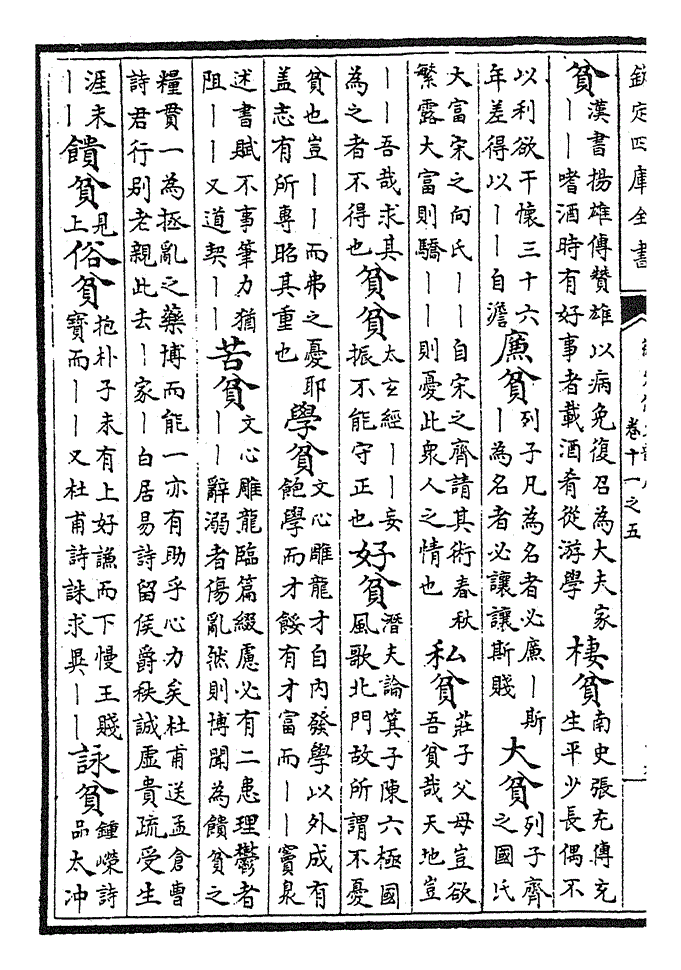 欽定四庫全書
卷十一之五
貧漢書揚雄傳贊雄以病免復召為大夫家——嗜酒時有好事者載酒肴從游學棲貧南史張充傳充生平少長偶不
以利欲干懷三十六年差得以——自澹廉貧列子凡為名者必廉—斯—為名者必讓讓斯賤大貧列子齊之國氏
大富宋之向氏——自宋之齊請其術春秋繁露大富則驕——則憂此衆人之情也私貧莊子父母豈欲吾貧哉天地豈
——吾哉求其為之者不得也貧貧太玄經——妄振不能守正也好貧潛夫論箕子陳六極國風歌北門故所謂不憂
貧也豈——而弗之憂耶蓋志有所專昭其重也學貧文心雕龍才自内發學以外成有飽學而才餒有才富而——竇泉
述書賦不事筆力猶阻——又道契——苦貧文心雕龍臨篇綴慮必有二患理鬱者——辭溺者傷亂然則博聞為饋貧之
糧貫一為拯亂之藥博而能一亦有助乎心力矣杜甫送孟倉曹詩君行别老親此去—家—白居易詩留侯爵秩誠虚貴疏受生
涯未——饋貧見上俗貧抱朴子未有上好謙而下慢王賤寶而——又杜甫詩誅求異——詠貧鍾嶸詩品太冲